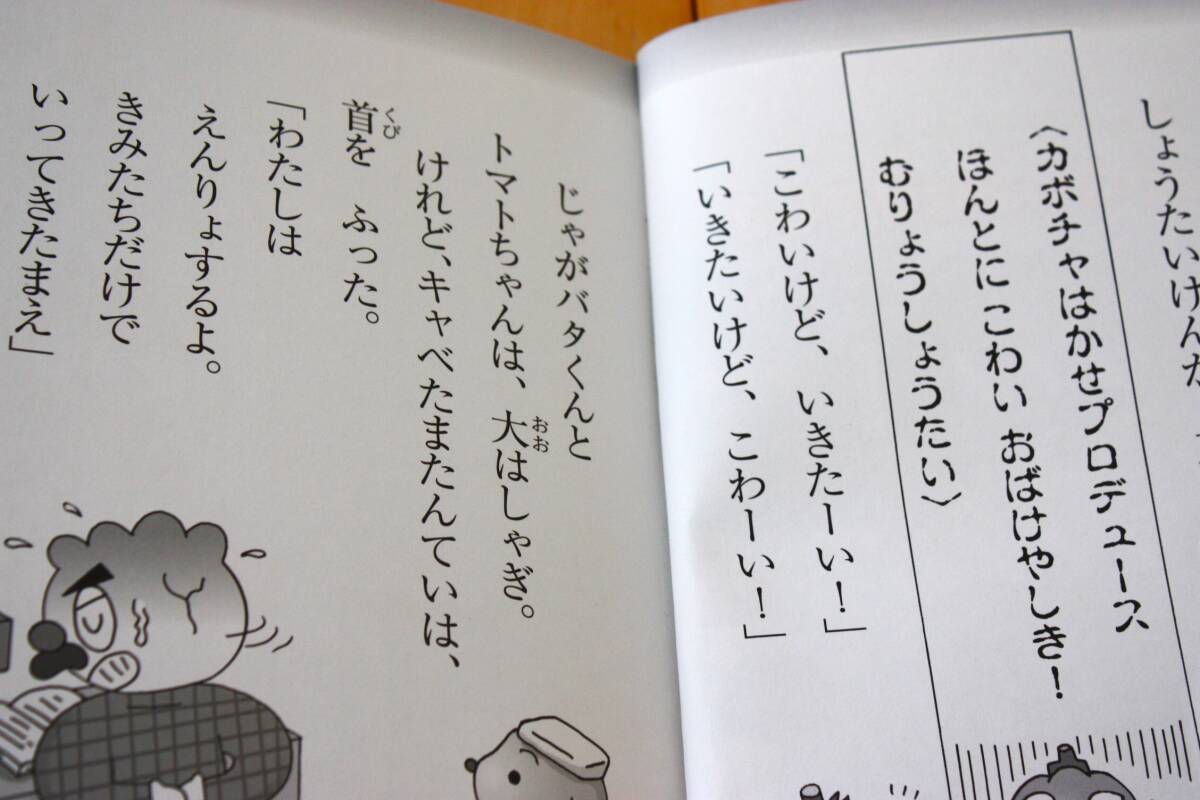 しょうたいけんだ
〈カボチャはかせプロデュース
ほんとに こわい おばけやしき！
むりょうしょうたい〉
「こわいけど、いきたーい！」
「いきたいけど、こわーい！」
じゃがバタくんと
トマトちゃんは、大はしゃぎ。
おお
けれど、キャベたまたんていは、
首を ふった。
くび
「わたしは
えんりょするよ。
きみたちだけで
いってきたまえ」